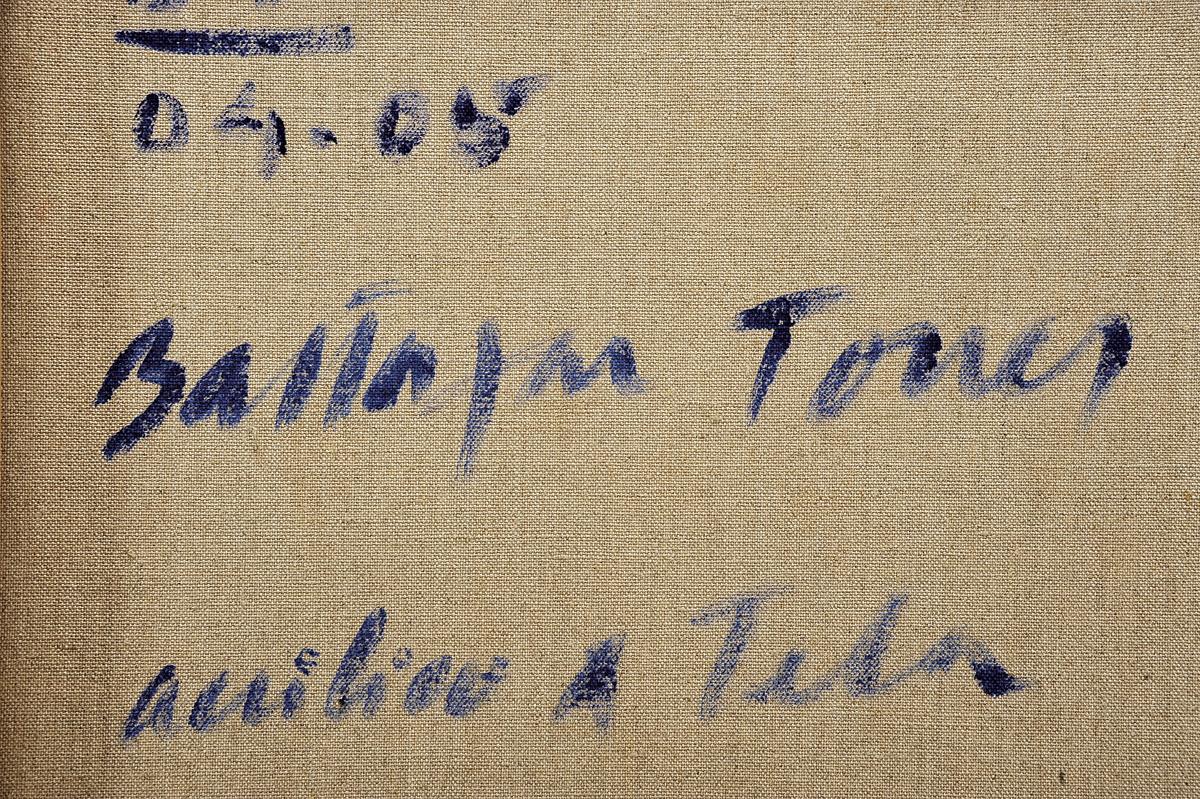 04.05
Baltazar Torres
acrílico s/ Tela